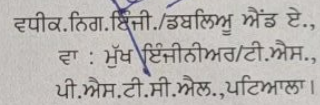 ਵਧੀਕ.ਨਿਗ.ਇੰਜੀ./ਡਬਲਿਊ ਐਂਡ ਏ.,
ਵਾ : ਮੁੱਖ ਇੰਜੀਨੀਅਰ/ਟੀ.ਐਸ.,
ਪੀ.ਐਸ.ਟੀ.ਸੀ.ਐਲ.,ਪਟਿਆਲਾ।